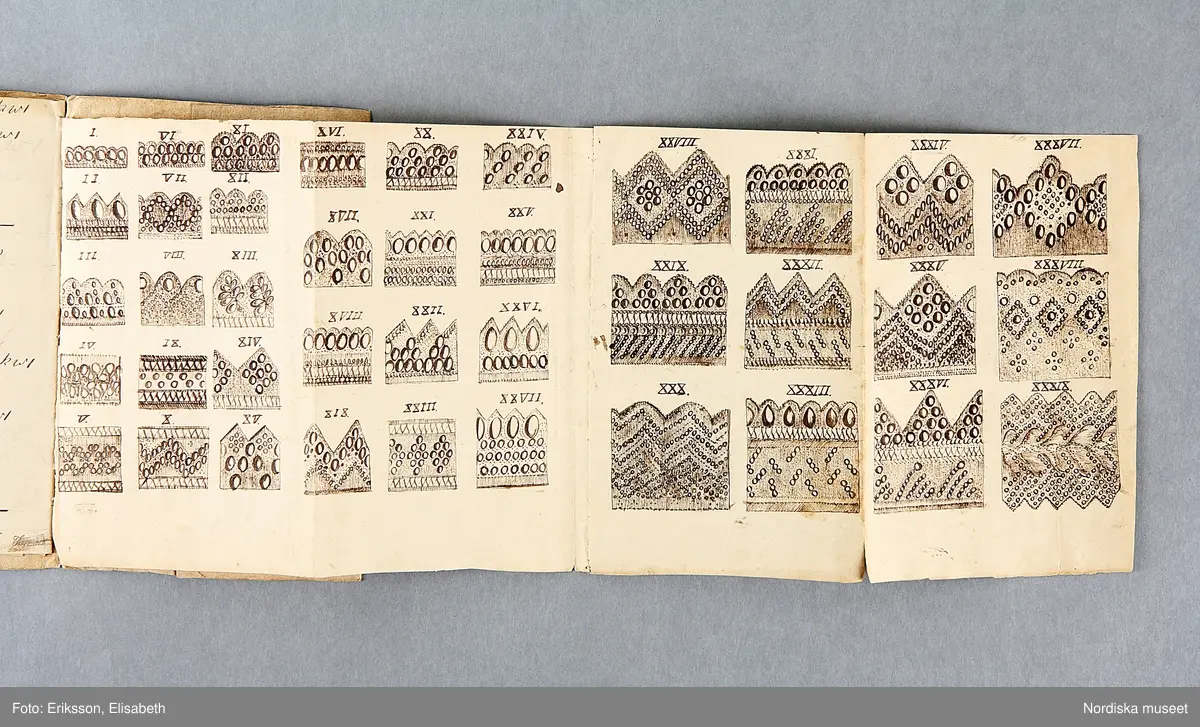 I. VI. XI. XVI. XX. XXIV. XXVIII. XXXI. XXXIV. XXXVII.
II. VII. XII. XVII. XXI. XXV. XXIX. XXXII. XXXV. XXXVIII.
III. VIII. XIII. XVIII. XXII. XXVI.
IV. IX. XIV. XXX. XXXIII. XXXVI. XXXIX.
V. X. XV. XIX. XXIII. XXVII.
Foto: Eriksson, Elisabeth
Nordiska museet